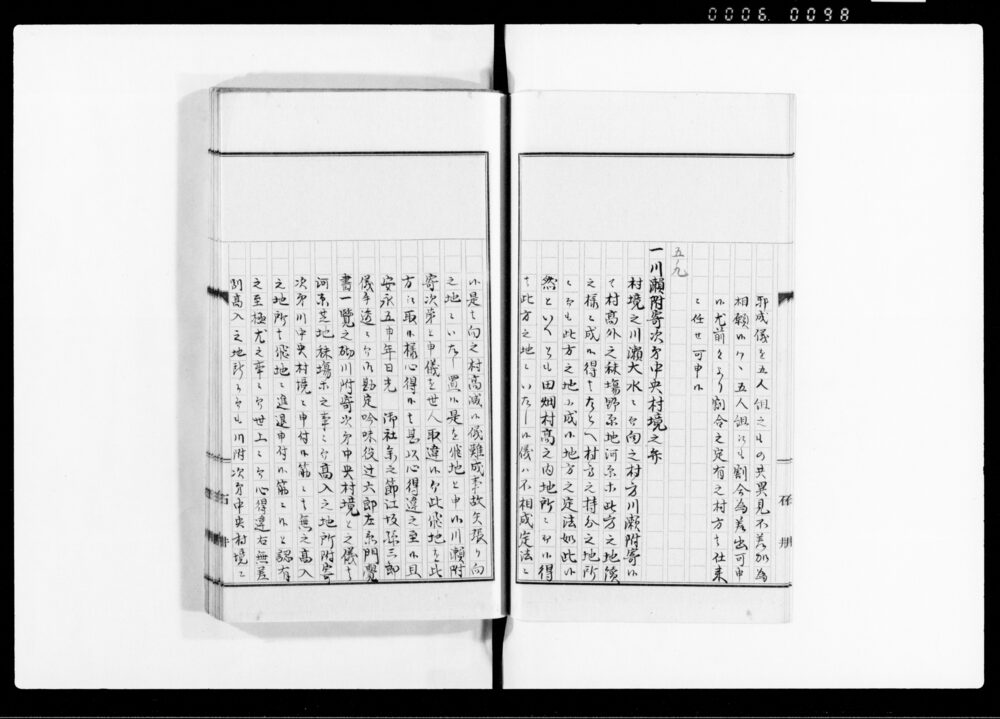 0006 0098
郭成儀を五人組之もの共異見不差加為
相願候ハヽ五人組にも割合為差出可申
候尤前々より割合之定有之村方は仕来
に任せ可申候
五九
一川瀬附寄次第中央村境之事
村境之川瀬大水にて向之村方川瀬附寄候
て村高外之秣場野原地河原等此方之地続
之様に成候得はたとへ村方之持分之地所
にても此方之地に成候地方之定法如此候
然といへとも田畑村高之内地所にて候得
は此方之地にいたし候儀ハ不相成定法に
候是は向之村高減候儀難成事故矢張り向
之地にいたし置候是を飛地と申候川瀬附
寄次第と申儀を世人取違候て此飛地を此
方に取候様心得候は甚以心得違之至候且
安永五申年日光 御社参之節江坂孫三郎
儀手透にて御勘定吟味役辻六郎左衛門覚
書一覧之砌川附寄次第中央村境と之儀は
河原芝地秣場等之事にて高入之地所附寄
次第川中央村境と申付候筋は無之高入
之地所は飛地に進退申付候筋にと認有
之至極尤之事にて世上にて心得違右無差
別高入之地所にても川附次第中央村境に